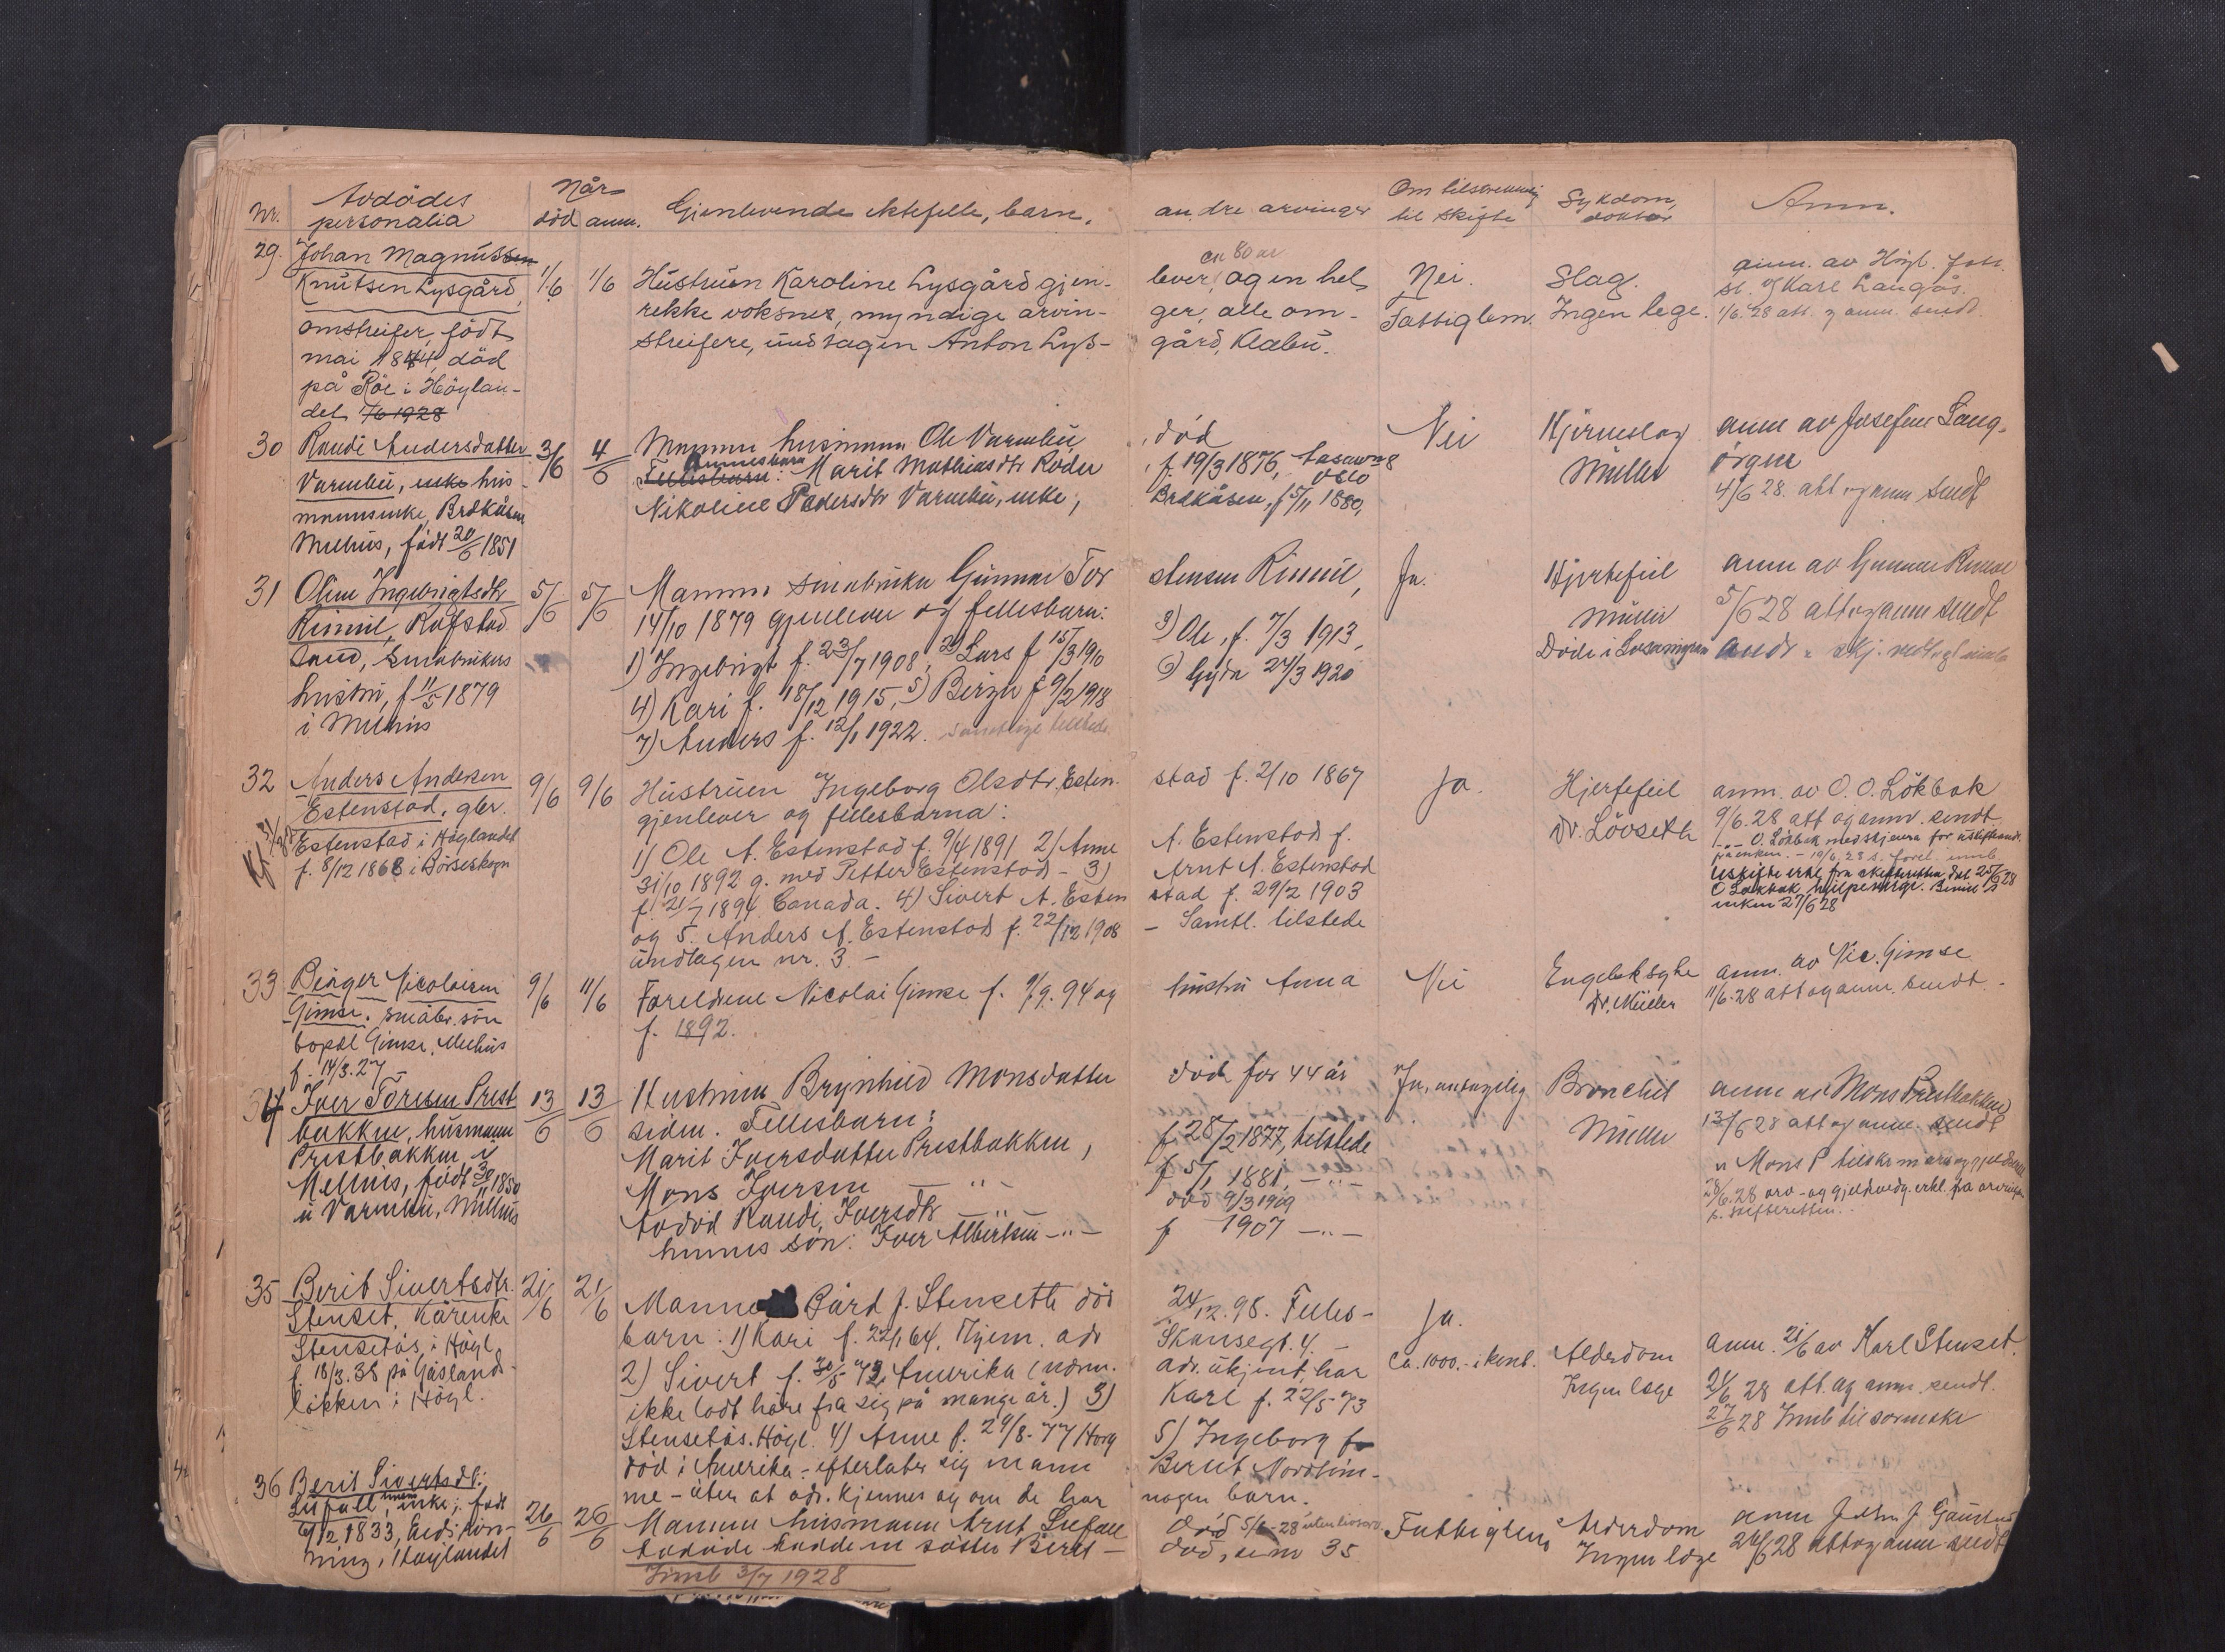 Nr.
Avdödes personalia
Når
död anm.
Gjenlevende ektefelle, barn,
andre arvinger
Om tilstrekkelig
til skifte
Sykdom,
doktor
Anm.
29.
Johan Magnussen
Knutsen Lysgård,
omstreifer, födt
mai 1844, död
på Röe i Höylan-
det 1/6 1928
1/6
1/6
Hustruen Karoline Lysgård gjen-
rekke voksner, myndige arvin-
streifere, undtagen Anton Lys-
ca 80 år
lever, og en hel
ger, alle om-
gård, Klæbu.
Nei.
Fattiglem.
Slag.
Ingen lege.
anm. av Högl.
Karl Langås.
1/6.28 att. og anm. sendt.
30
Randi Andersdatter
Varmbu, enke hus-
mannsenke, Brekkåsen
Melhus, födt 20/6 1851
3/6
4/6
Mannen husmann Ole Varmbu
Fellesbarn: Marit Mathiasdtr
Nikoline Pedersdtr Varmbu, enke,
död
f. 19/3 1876,
Oslo
Brekkåsen, f 5/11 1880,
Nei
Hjerneslag
Müller
anm av Josefine Lang-
örgen
4/6 28. att og anm sendt
31
Oline Ingebrigtsdtr
Rimul, Rofstad
sand, småbrukers
hustru, f 11/5 1879
i Melhus
5/6
5/6
Mannen småbruker Gunnar Tor
14/10 1879 gjenlever og fellesbarn:
1) Ingebrigt f. 23/7 1908, 2) Lars f 15/3 1910
4) Kari f. 18/12 1915, 5) Berga f 9/2 1918
7) Anders f. 12/1 1922. samtlige tilstede
stensen Rimul,
3) Ole, f. 7/3 1913,
6) Gyda 24/3 1920
Ja.
Hjertefeil
Müller
Döde i
anm av Gunnar Rimul
5/6 28 att og anm sendt
32
Anders Andersen
Estenstad, gbr.
Estenstad i Höylandet
f. 8/12 1868 i Börseskogn
9/6
9/6
Hustruen Ingeborg Olsdtr. Esten-
gjenlever og fellesbarna:
1) Ole A. Estenstad f. 9/4 1891 2) Anne
31/10 1892 g. med Petter Estenstad - 3)
f. 21/7 1894 Canada. 4) Sivert A. Esten
og 5. Anders A. Estenstad f. 22/12 1908
undtagen nr. 3. -
stad f. 2/10 1867
A. Estenstad f.
Arnt A. Estenstad
stad f. 29/2 1903
- Samtl. tilstede
Ja.
Hjertefeil
Dr. Lövseth
anm. av O. O. Lökbak
9/6.28 att og anm. sendt
O. Lökbak
enken 27/6 28
33
Birger Nicolaisen
Gimse. småbr. sön
bopel Gimse, Melhus
f. 14/3.27 -
9/6
11/6
Foreldrene Nicolai Gimse f. 9/9.94 og
f. 1892.
hustru Anna
Nei
Engelsk syke
Dr. Müller
anm. av Nic. Gimse
11/6.28 att og anm. sendt. -
34
Iver Toresen Prest
bakken, husmann
Prestbakken, i
Melhus, födt 30/11 1850
i Varmbu, Melhus
13/6
13/6
Hustruen Brynhild Monsdatter
siden. Fellesbarn:
Marit Iversdatter Prestbakken,
Mons Iversen - " -
Avdöd Randi, Iversdtr - " -
hennes sön: Iver Albertsen - " -
död for 44 år
f 28/2 1877, tilstede
f 5/1 1881, - " -
död 9/3 1909
f 1907 - " -
Ja, antagelig
Bronchit
Müller
anm av Mons Prestbakken
13/6 28 att og anm. sendt
28/6.28 arv- og gjeldsvedg. erkl. fra
p. skifteretten.
35
Berit Sivertsdtr.
Stenset, Kårenke
Stensetås, i Högl.
f. 18/3.38 på Gåslands-
lökken i Högl.
21/6
21/6
Mannen Bård J. Stenseth död
barn: 1) Kari f. 22/1 64, Hjem. adr
2) Sivert f. 30/5 72, Amerika
ikke latt höre fra sig på mange år.) 3)
Stensetås. Högl. 4) Anne f. 29/8.77 Horg
död i Amerika - efterlater sig mann
me - uten at adr. kjennes og om de har
24/12.98. Felles-
Skansegt. 4. -
adr. ukjent, har
Karl f. 22/5-73
5) Ingeborg
Bernt Nordtöm-
nogen barn.
Ja.
Ca. 1000.- i kont.
Alderdom
Ingen læge
anm. 21/6 av Karl Stenset.
21/6 28 att. og anm. sendt.
27/6 28
36
Berit Sivertsdt.
enke, födt
1833,
Höylandet
26/6
26/6
Mannen husmann Arnt
Avdöde hadde en söster Beret -
Innb 3/7 1928
död
död, se nr 35
Fattiglem
Alderdom
Ingen læge
anm
26/6 28 att og anm sendt